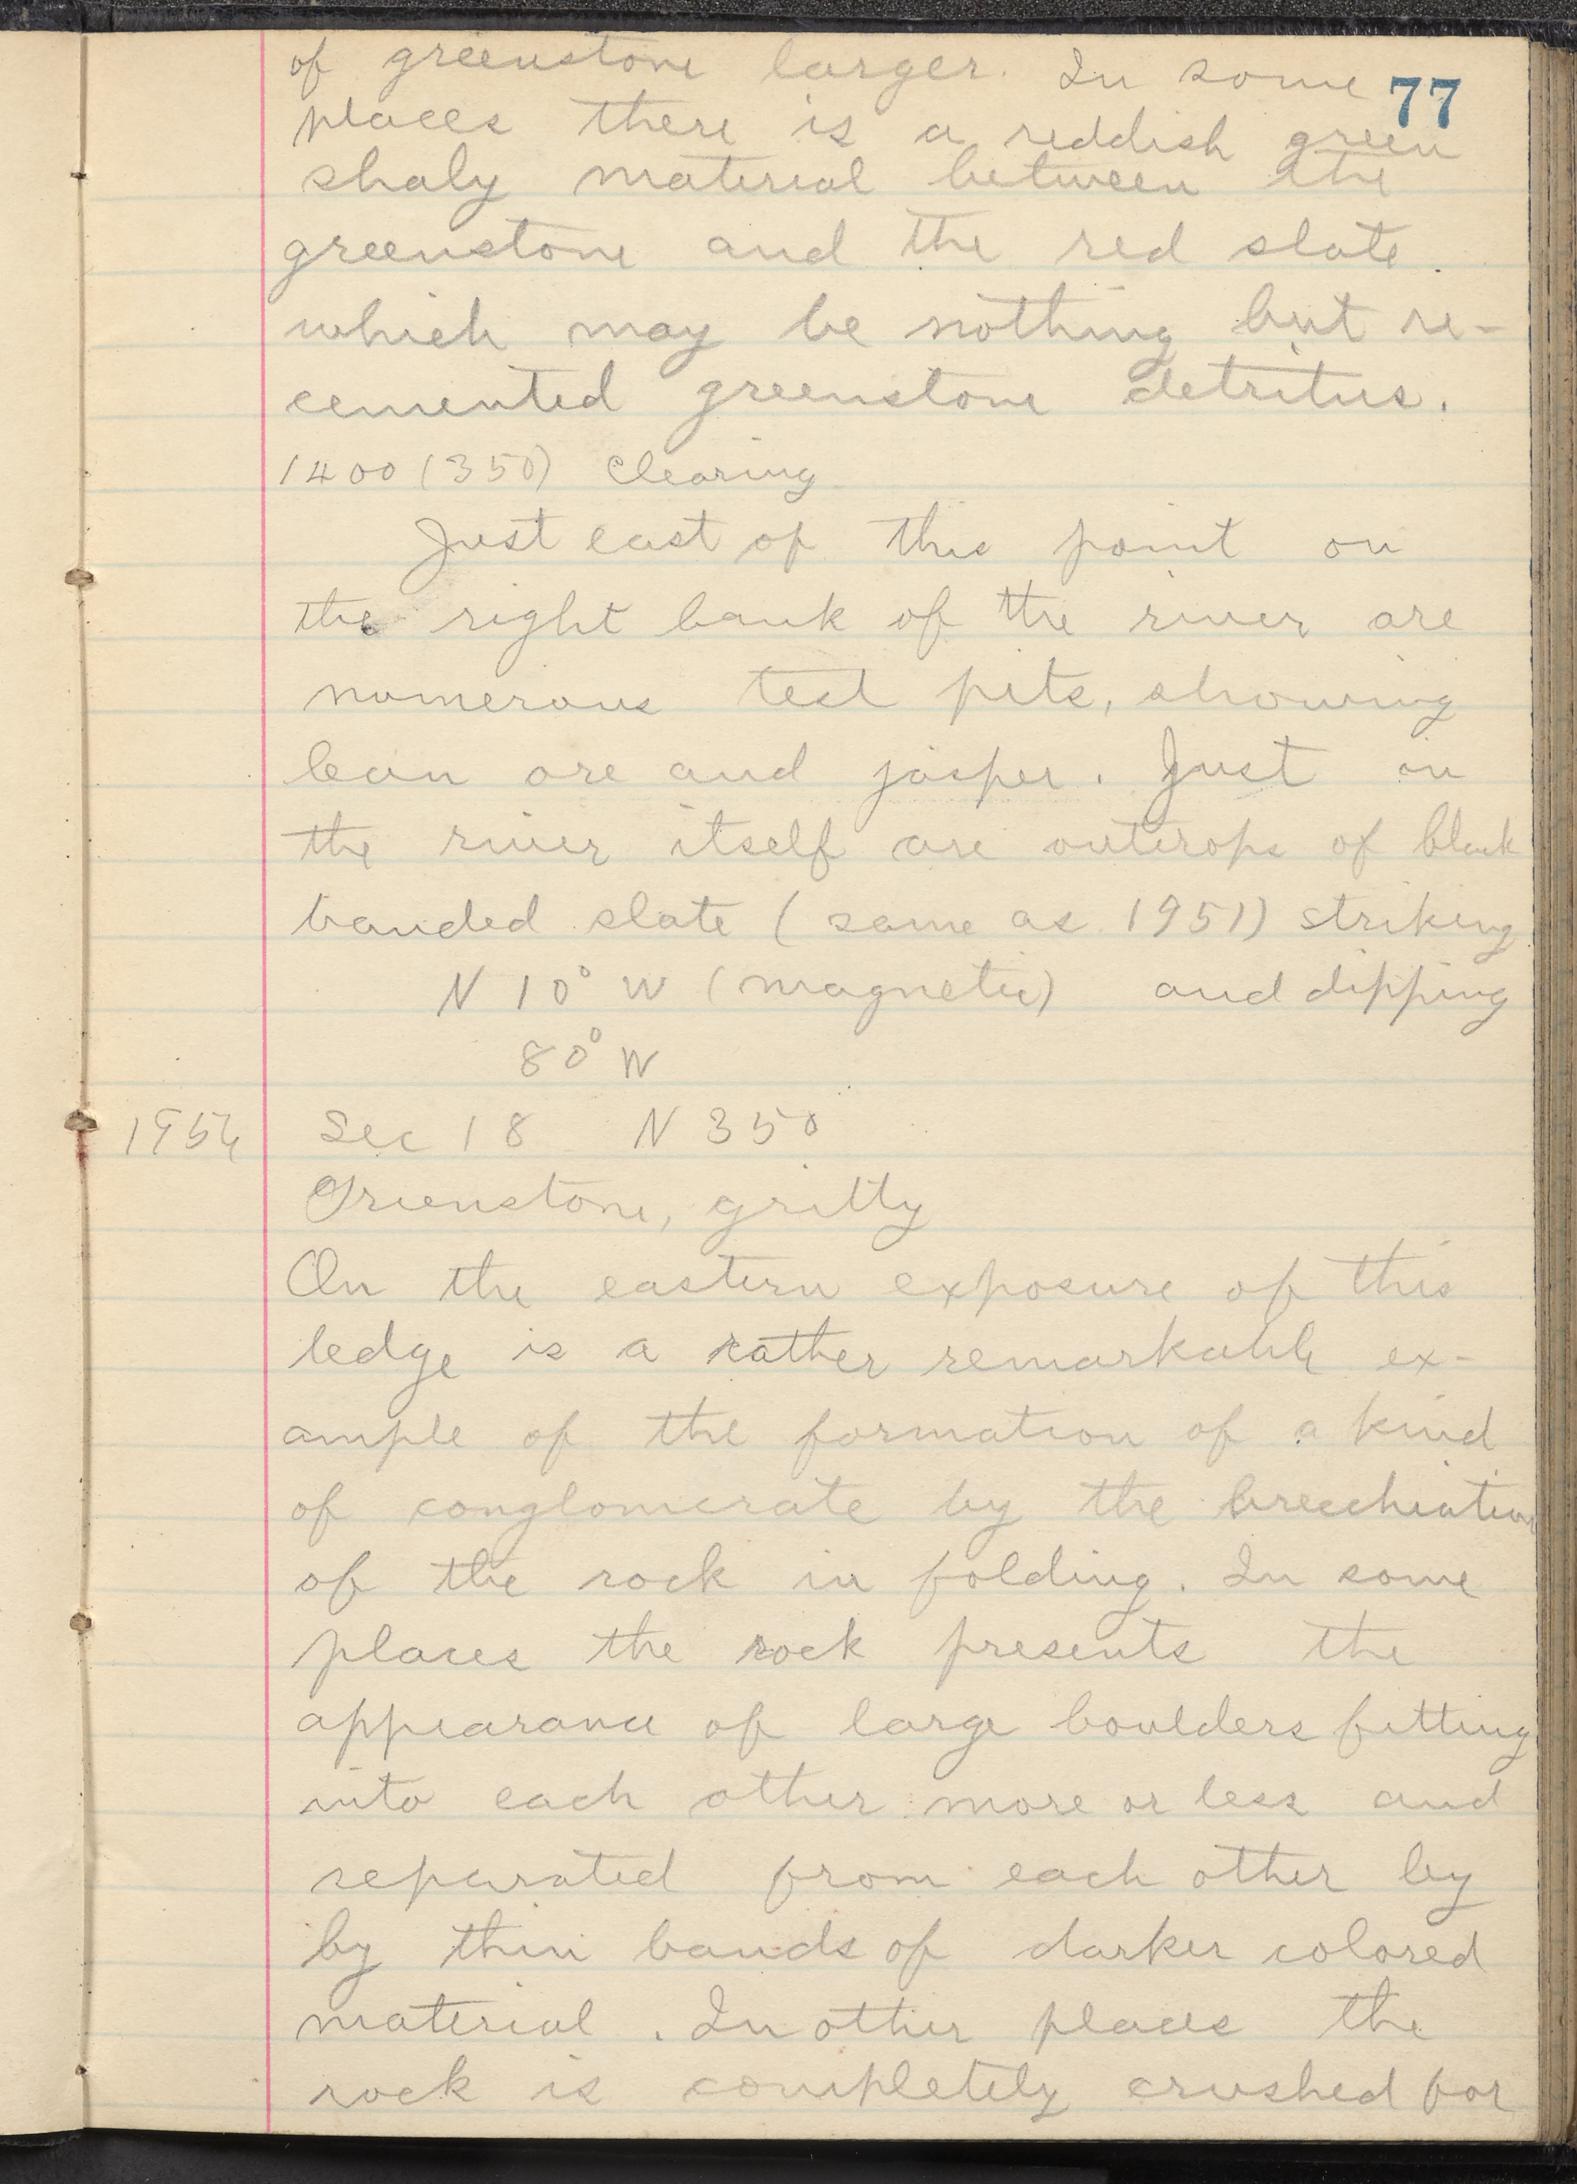 77
of greenstone larger. In some
places there is a reddish green
shaly material between the
greenstone and the red slate.
which may be nothing but re-
cemented greenstone detritus.
1400 (350) Clearing
Just east of this point on
the right bank of the river are
numerous test pits, showing
lean ore and jasper. Just in
the river itself are outcrops of black
banded slate (same as 1951) striking
N 10° W (magnetic) and dipping
80° W
1954 Sec 18 N 350
Greenstone, gritty
On the eastern exposure of this
ledge is a rather remarkable ex-
ample of the formation of a kind
of conglomerate by the brecchiation
of the rock in folding. In some
places the rock presents the
appearance of large boulders fitting
into each other more or less and
separated from each other by
by thin bands of darker colored
material. In other places the
rock is completely crushed for